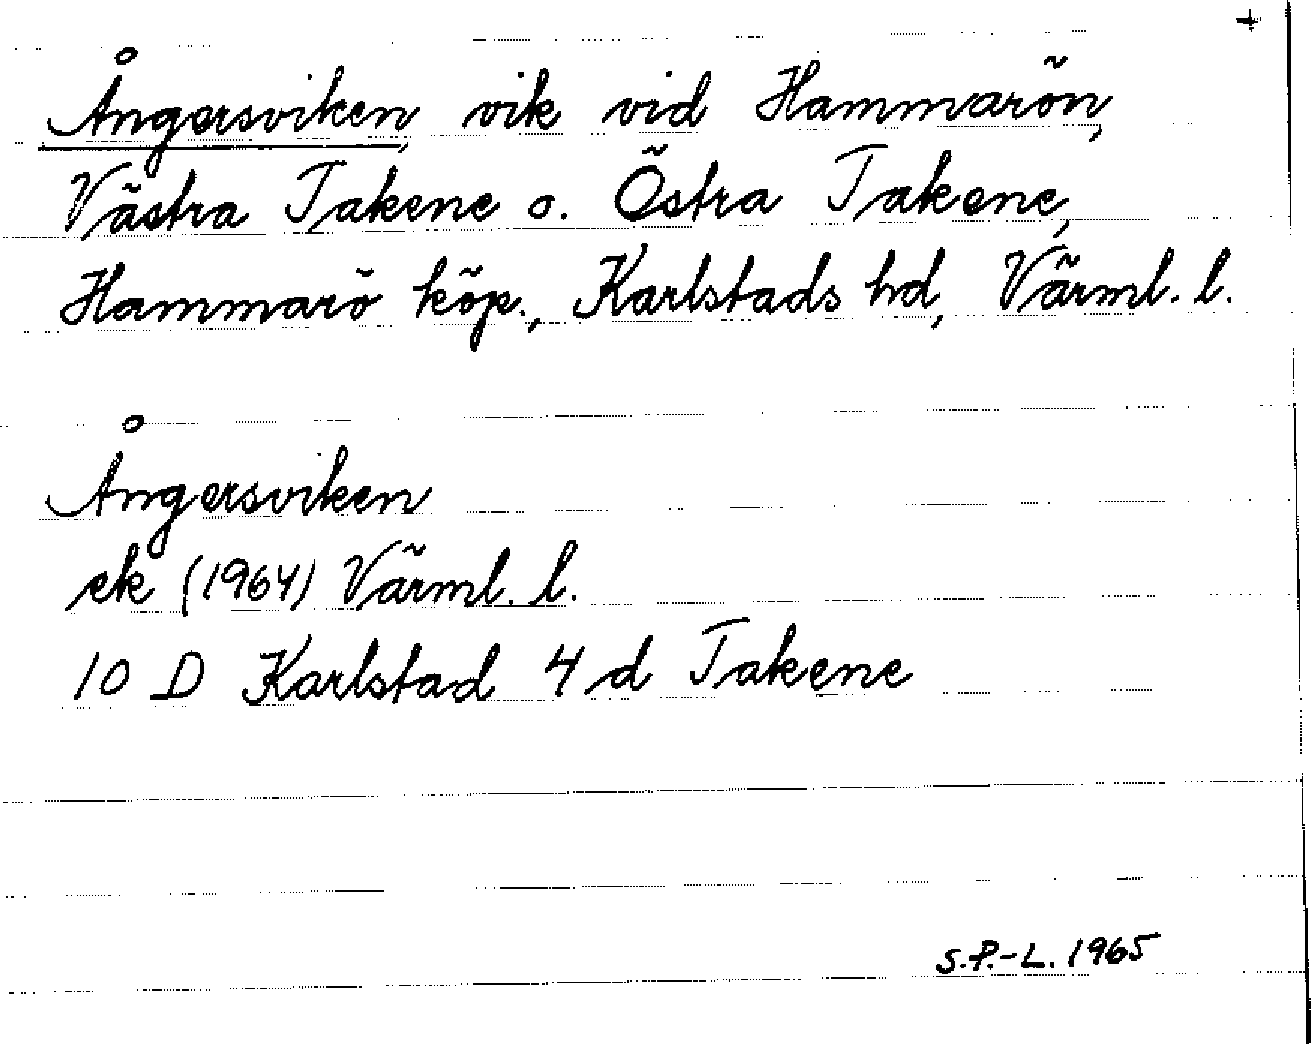 +
Ångersviken, vik vid Hammarön,
Västra Takene o. Östra Takene,
Hammarö köp., Karlstads hd, Värml. l.
Ångersviken
ek (1964) Värml. l.
10 D Karlstad 4 d Takene
S.P.-L. 1965